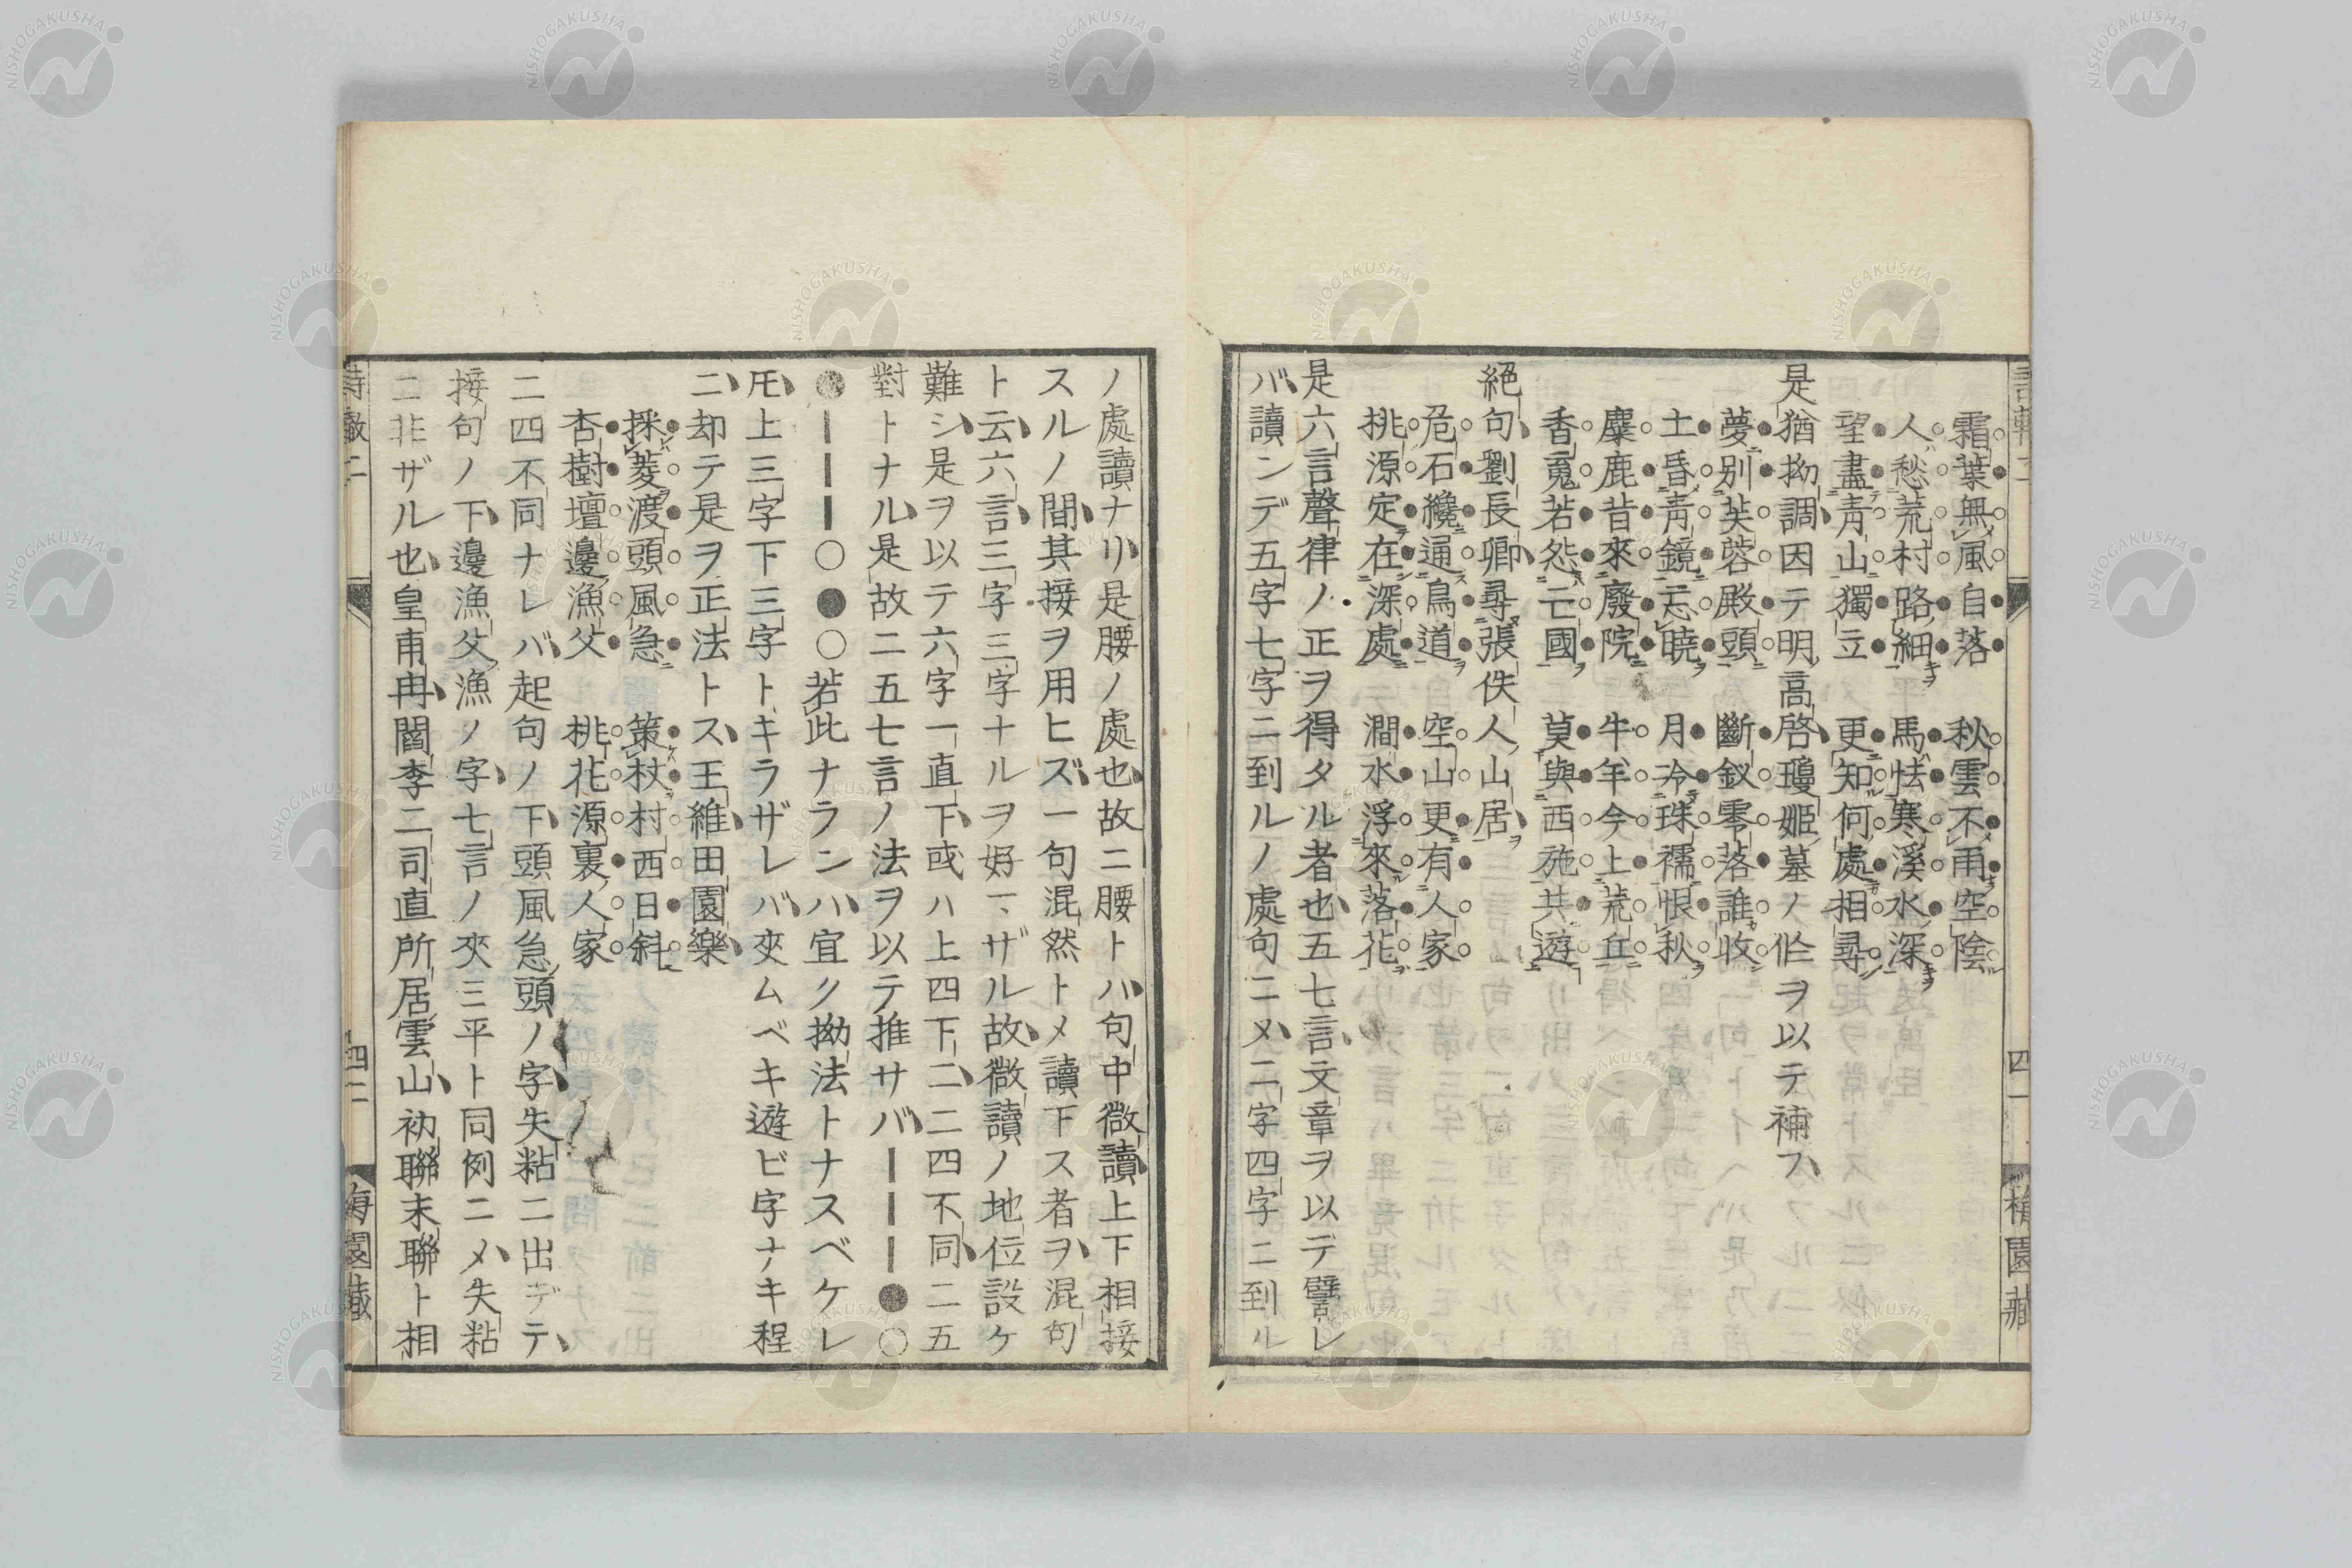 霜葉無風自落 秋雲不雨空陰
人愁荒村路細 馬怯寒溪水深
望盡青山獨立 更知何處相尋
是猶拗調因テ明高啓瓊姬墓ノ作ヲ以テ補フ
夢別芙蓉殿頭 斷釵零落誰收
土昏青鏡忘曉 月冷珠襦恨秋
麋鹿昔來廢院 牛羊今上荒丘
香魂若怨亡國 莫與西施共遊
絕句劉長卿尋張佚人山居
危石纔通鳥道 空山更有人家
桃源定在深處 澗水浮來落花
是六言聲律ノ正ヲ得タル者也五七言文章ヲ以デ譬レ
バ讀ンデ五字七字ニ到ルノ處句ニメ二字四字ニ到ル
四一
梅園藏
ノ處讀ナリ是腰ノ處也故ニ腰トハ句中微讀上下相接
スルノ間其接ヲ用ヒズ一句混然トメ讀下ス者ヲ混句
ト云六言三字三字ナルヲ好マザル故微讀ノ地位設ケ
難シ是ヲ以テ六字一直下或ハ上四下二二四不同二五
對トナル是故ニ五七言ノ法ヲ以テ推サバ┃┃┃●○
●┃┃┃○●○若此ナランハ宜ク拗法トナスベケレ
𪜈上三字下三字トキラザレバ夾ムベキ遊ビ字ナキ程
ニ却テ是ヲ正法トス王維田園樂
採菱渡頭風急 策杖村西日斜
杏樹壇邊漁父 桃花源裏人家
二四不同ナレバ起句ノ下頭風急頭ノ字失粘ニ出デテ
接句ノ下邊漁父漁ノ字七言ノ夾三平ト同例ニメ失粘
ニ非ザル也皇甫冉閻李二司直所居雲山初聯末聯ト相
詩轍二
四二
梅園藏